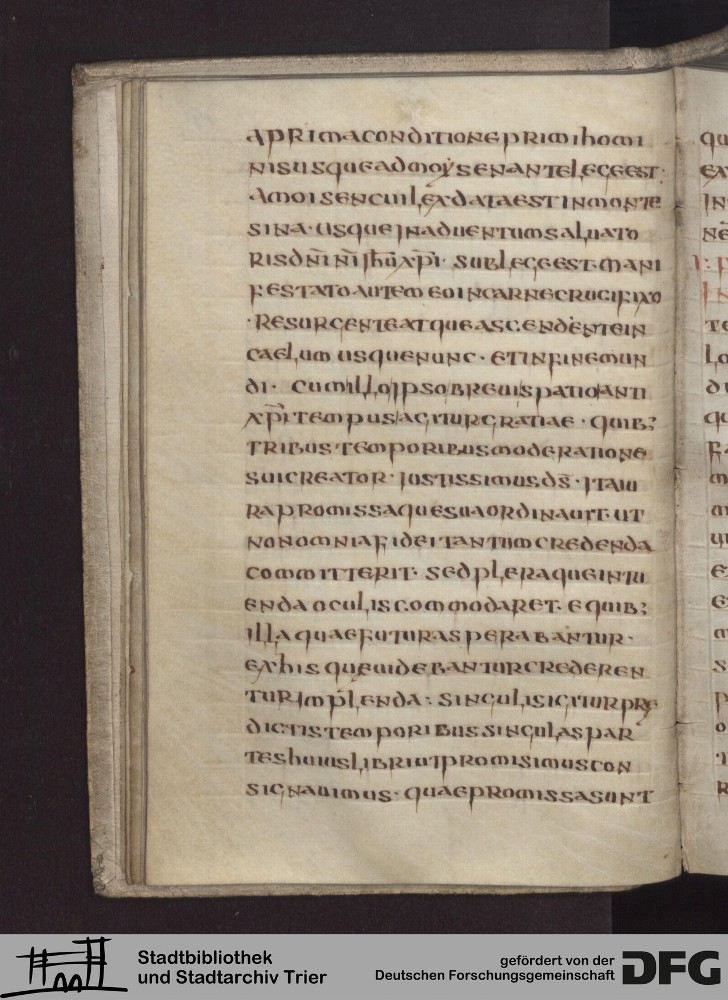 aprimaconditioneprimihomi
nisusqueadmoysenantelegeest·
amoisencuilexdataestinmonte
sina·usqueinaduentumsaluato
risdn̄in̄iih̄ux̄pī·sublegeest·mani
festatoautemeoincarnecrucifixo
·resurgenteatqueascendentein
caelumusquenunc·etinfinemun
di·cumilloipsobreuispatioanti
xp̄itempusagiturgratiae·quib;
tribustemporibusmoderatione
suicreator·iustissimusds̄·itaui
rapromissaquesuaordinauit·ut
nonomniafideitantumcredenda
committerit·sedpleraqueintu
endaoculiscommodaret·equib;
illaquaefuturasperabantur·
exhisqueuidebanturcrederen
turimplenda:singulisigiturpre
dictistemporibussingulaspar
teshuiuslibriutpromisimuscon
signauimus·quaepromissasunt
qu
ex
in
ne
te
lo
di
qu
Stadtbibliothek
und Stadtarchiv Trier
gefördert von der
Deutschen Forschungsgemeinschaft
DFG